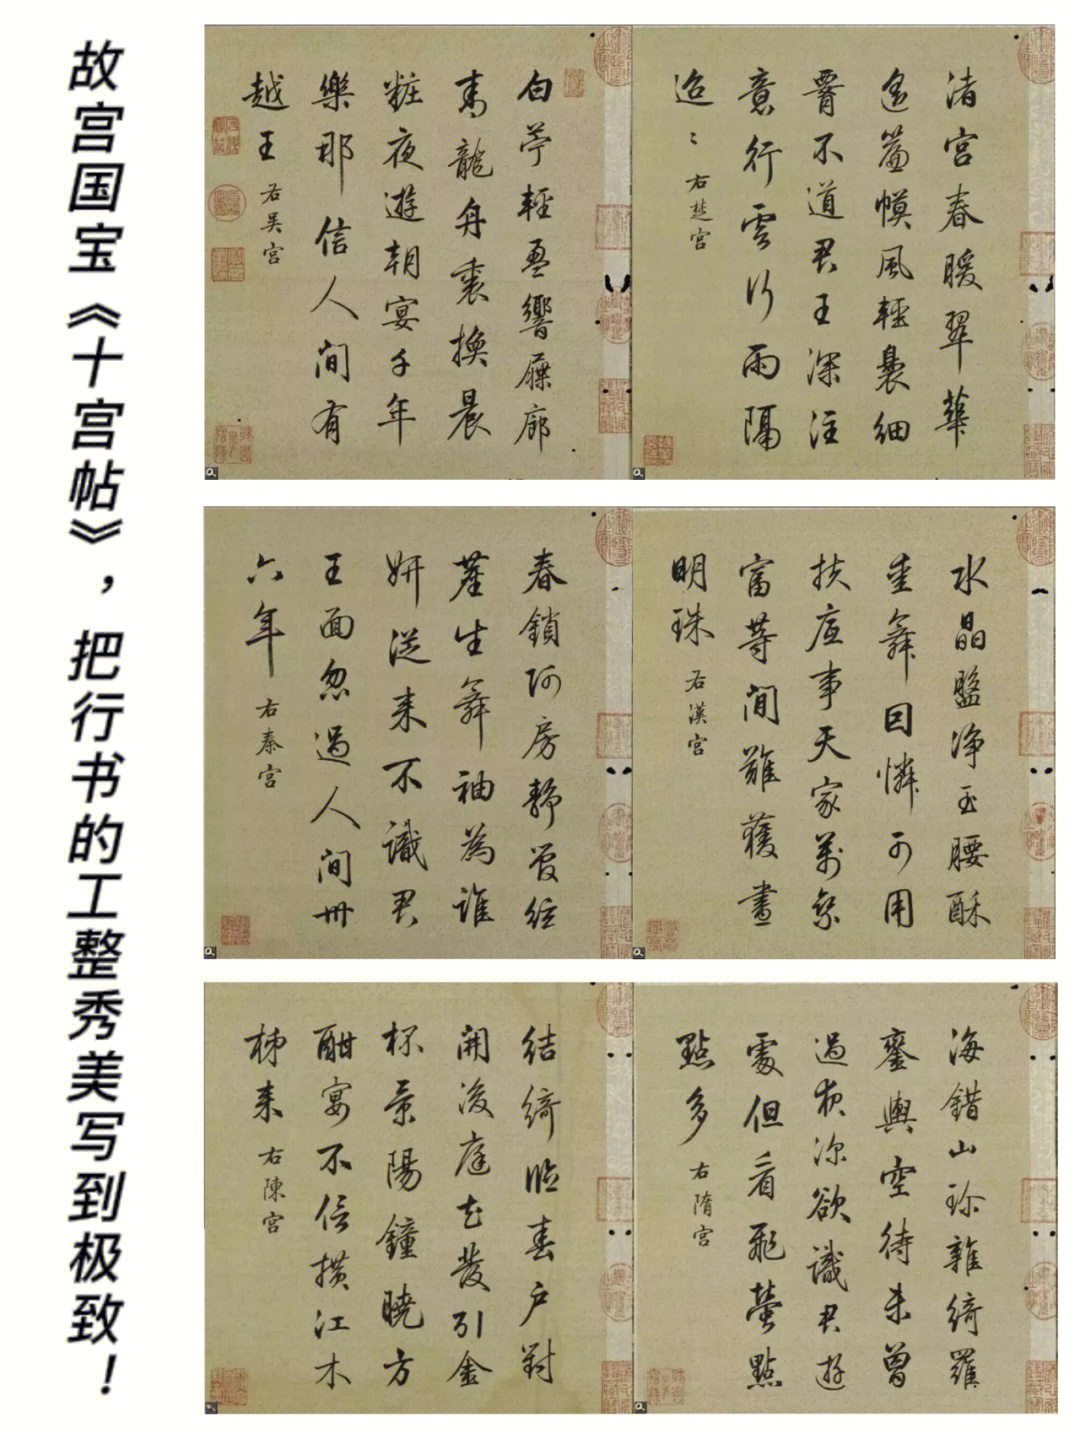 故宫国宝《十宫帖》，把行书的工整秀美写到极致！
白苧輕盈響屧廊
青龍舟裏換晨
粧夜遊朝宴千年
樂那信人間有
越王 右吴宫
渚宫春暖翠華
遥簾幙風輕裊細
腰不道君王深注
意行雲行雨隔
迢〻 右楚宫
春鎖阿房静管絃
塵生舞袖為誰
妍從来不識君
王面忽過人間卅
六年 右秦宫
水晶盤净玉腰酥
舞回憐可用
扶底事天家萬象
富等間難獲
明珠 右漢宫
結綺臨春户對
開後庭花發引金
杯景陽鐘曉方
酣宴不信横江木
柹来 右陳宫
海錯山珍雜綺羅
鑾輿空待未曾
過夜深欲識君遊
處但看飛螢點
點多 右隋宫